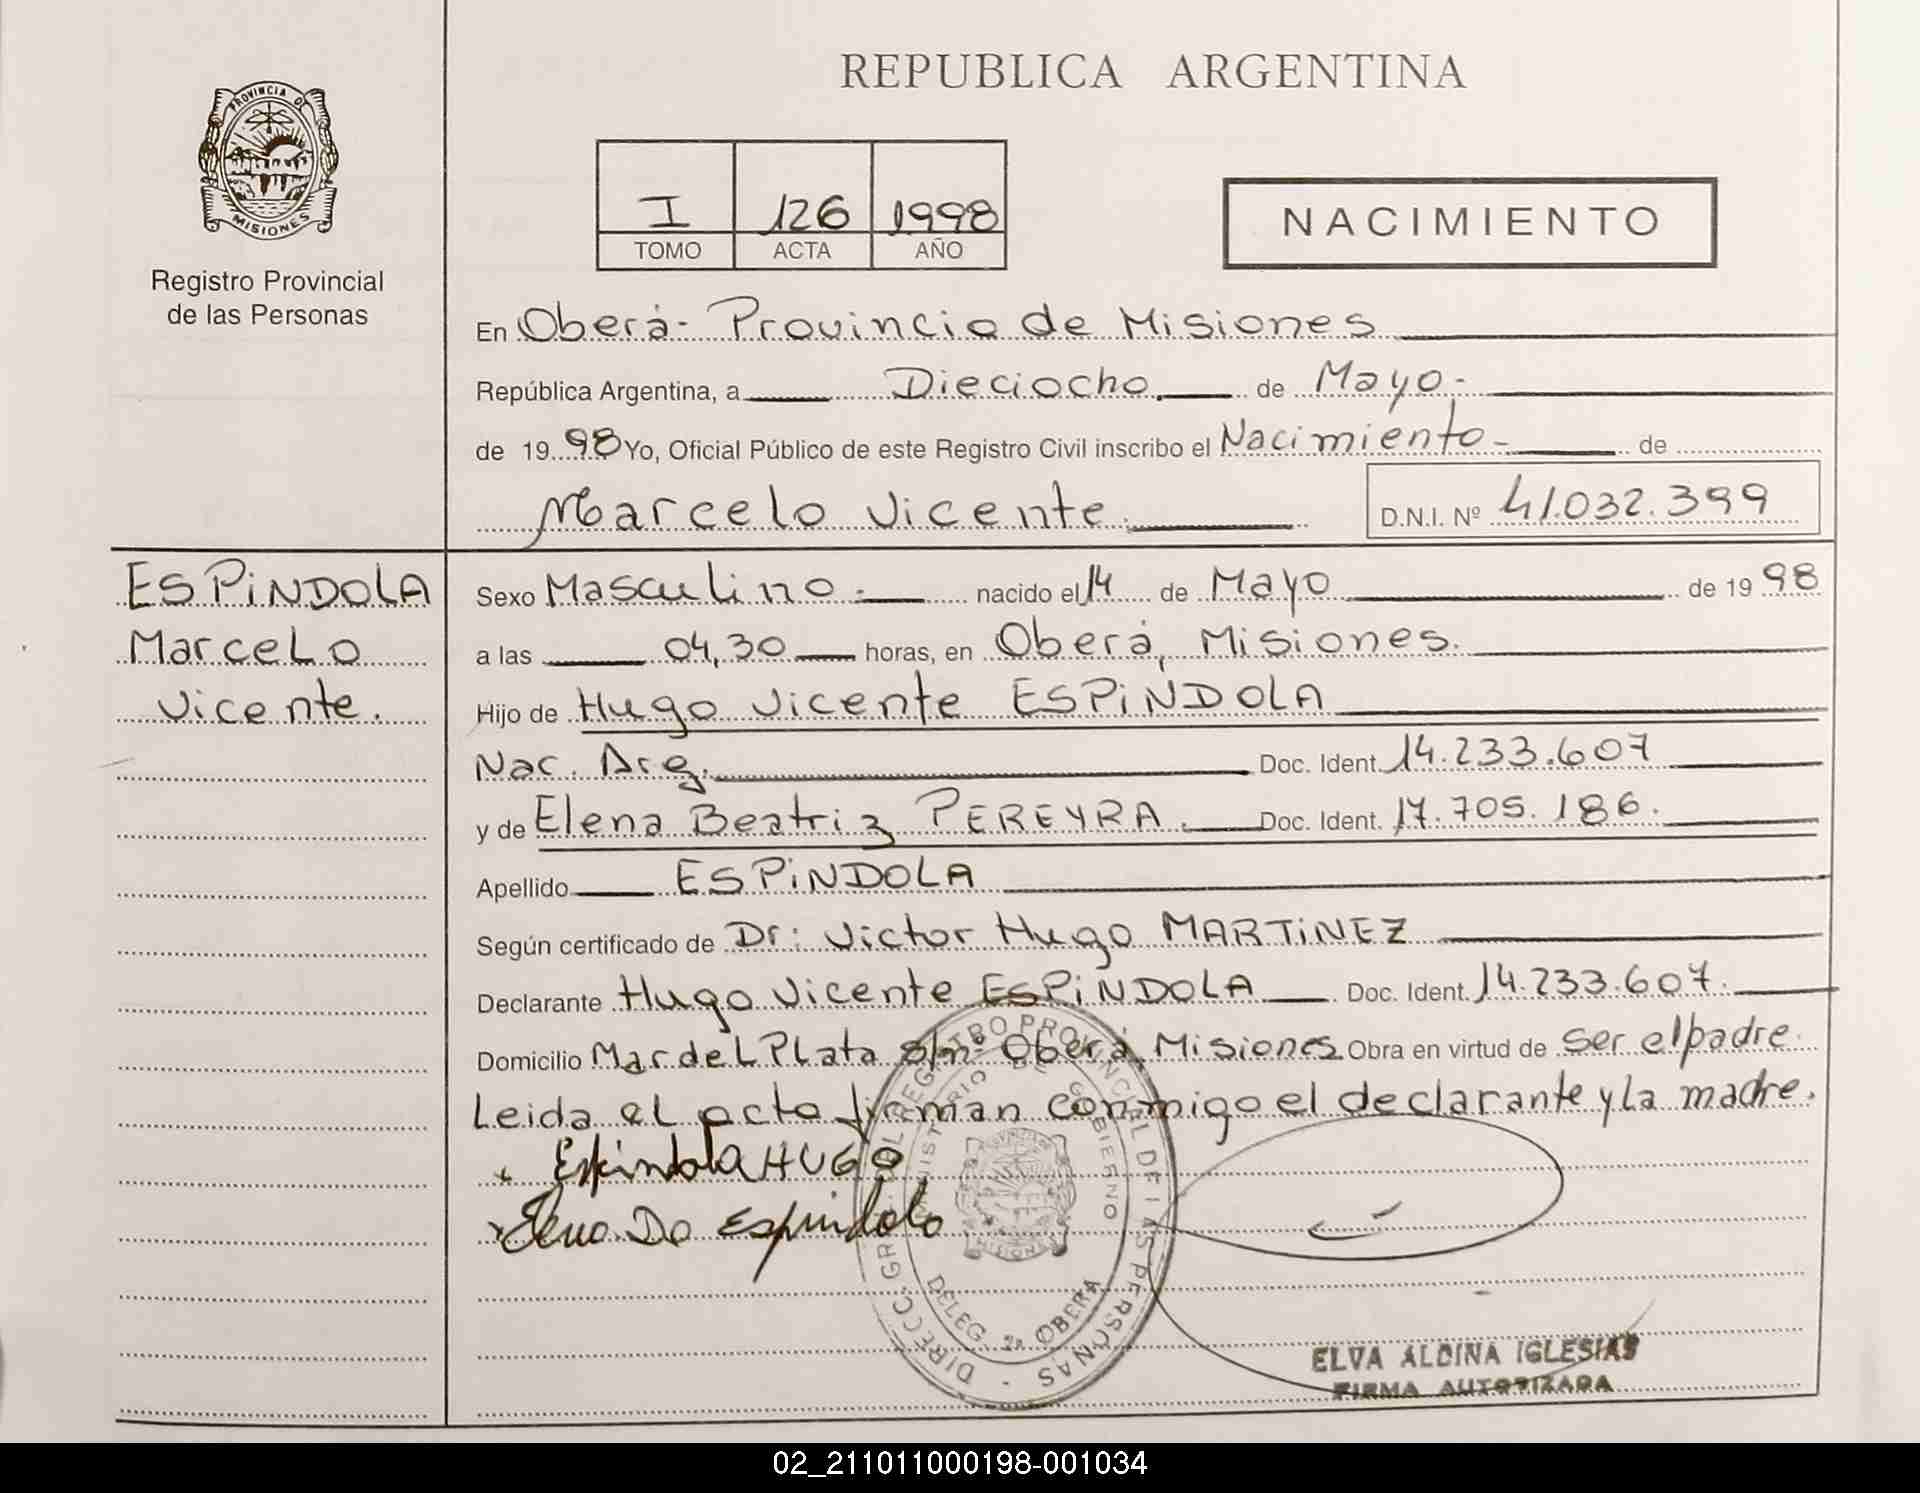 REPUBLICA ARGENTINA
PROVINCIA DE
MISIONES
Registro Provincial
de las Personas
I 126 1998
TOMO ACTA AÑO
NACIMIENTO
En Oberá- Provincia de Misiones
República Argentina, a Dieciocho. de Mayo.-
de 1998 Yo, Oficial Público de este Registro Civil inscribo el Nacimiento- de
Marcelo Vicente. D.N.I. Nº 41.032.399
ESPINDOLA
Marcelo
Vicente.
Sexo Masculino.- nacido el 14 de Mayo de 1998
a las 04,30 horas, en Oberá, Misiones.
Hijo de Hugo Vicente ESPINDOLA
Nac. Arg. Doc. Ident. 14.233.607
y de Elena Beatriz PEREYRA. Doc. Ident. 17.705.186.
Apellido ESPINDOLA
Según certificado de Dr: Victor Hugo MARTINEZ
Declarante Hugo Vicente ESPINDOLA Doc. Ident. 14.233.607.
Domicilio Mar del Plata s/nº Oberá, Misiones. Obra en virtud de ser el padre.
Leida el acta firman conmigo el declarante y la madre.
Espindola HUGO
Elena De Espindola
DIREC. GRAL. DEL REGISTRO PROVINCIAL DE LAS PERSONAS -
MINISTERIO DE GOBIERNO
MISIONES
DELEG. 2ª OBERA
ELVA ALDINA IGLESIAS
FIRMA AUTORIZADA
02_211011000198-001034